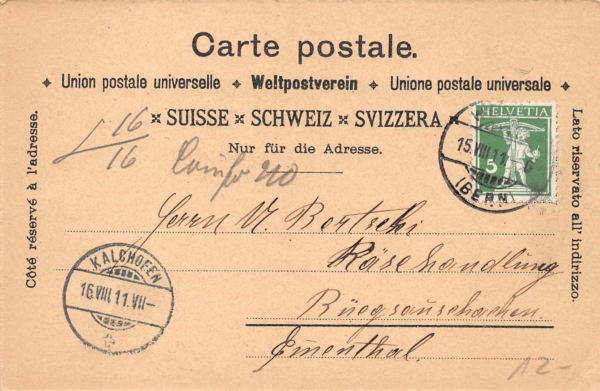 Carte postale.
Union postale universelle ✦ Weltpostverein ✦ Unione postale universale
SUISSE × SCHWEIZ × SVIZZERA
Nur für die Adresse.
Côté réservé à l'adresse.
Lato riservato all' indirizzo.
16
16
HELVETIA
5
15.VIII.11
(BERN)
Herrn
Bertschi
Käsehandlung
Rüegsauschachen
Emmenthal.
KALCHOFEN
16.VIII.11.VII–
12-